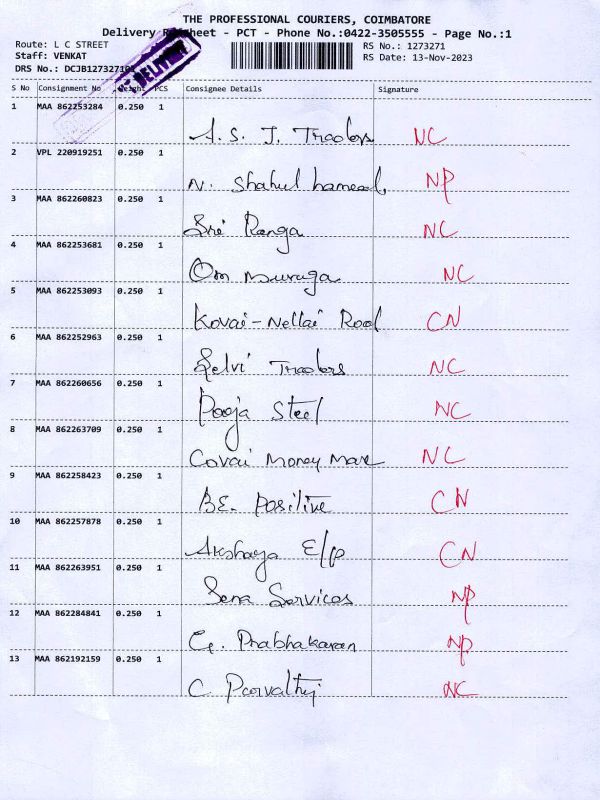 THE PROFESSIONAL COURIERS, COIMBATORE
Delivery Runsheet - PCT - Phone No.:0422-3505555 - Page No.:1
Route: L C STREET
RS No.: 1273271
Staff: VENKAT
RS Date: 13-Nov-2023
DRS No.: DCJB127327101
DELIVERY
S No Consignment No Weight PCS Consignee Details Signature
1 MAA 862253284 0.250 1
A. S. J. Traders NC
2 VPL 220919251 0.250 1
N. Shahul hameed NP
3 MAA 862260823 0.250 1
Sri Ranga NC
4 MAA 862253681 0.250 1
Om Muruga NC
5 MAA 862253093 0.250 1
Kovai-Nellai Roof CN
6 MAA 862252963 0.250 1
Selvi Traders NC
7 MAA 862260656 0.250 1
Pooja Steel NC
8 MAA 862263709 0.250 1
Covai Money Mare NC
9 MAA 862258423 0.250 1
BE. Positive CN
10 MAA 862257878 0.250 1
Akshaya E/p CN
11 MAA 862263951 0.250 1
Sena Services NP
12 MAA 862284841 0.250 1
G. Prabhakaran NP
13 MAA 862192159 0.250 1
C. Parvathy NC